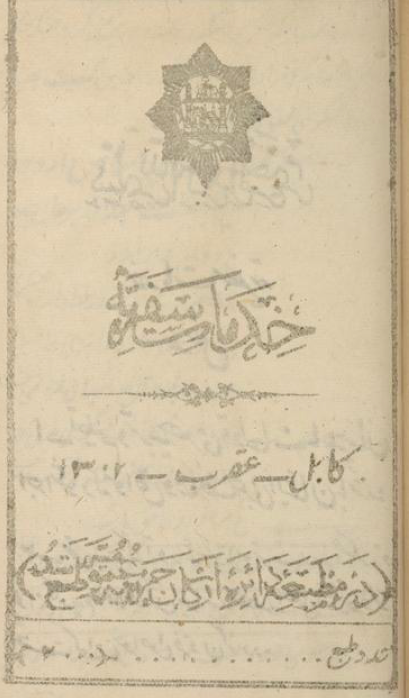 خدمات سفریه
کابل – عقرب – ۱۳۰۲
(در مطبعهٔ دائرهٔ ارکان حربیه عمومیه طبع شد)
تعداد طبع